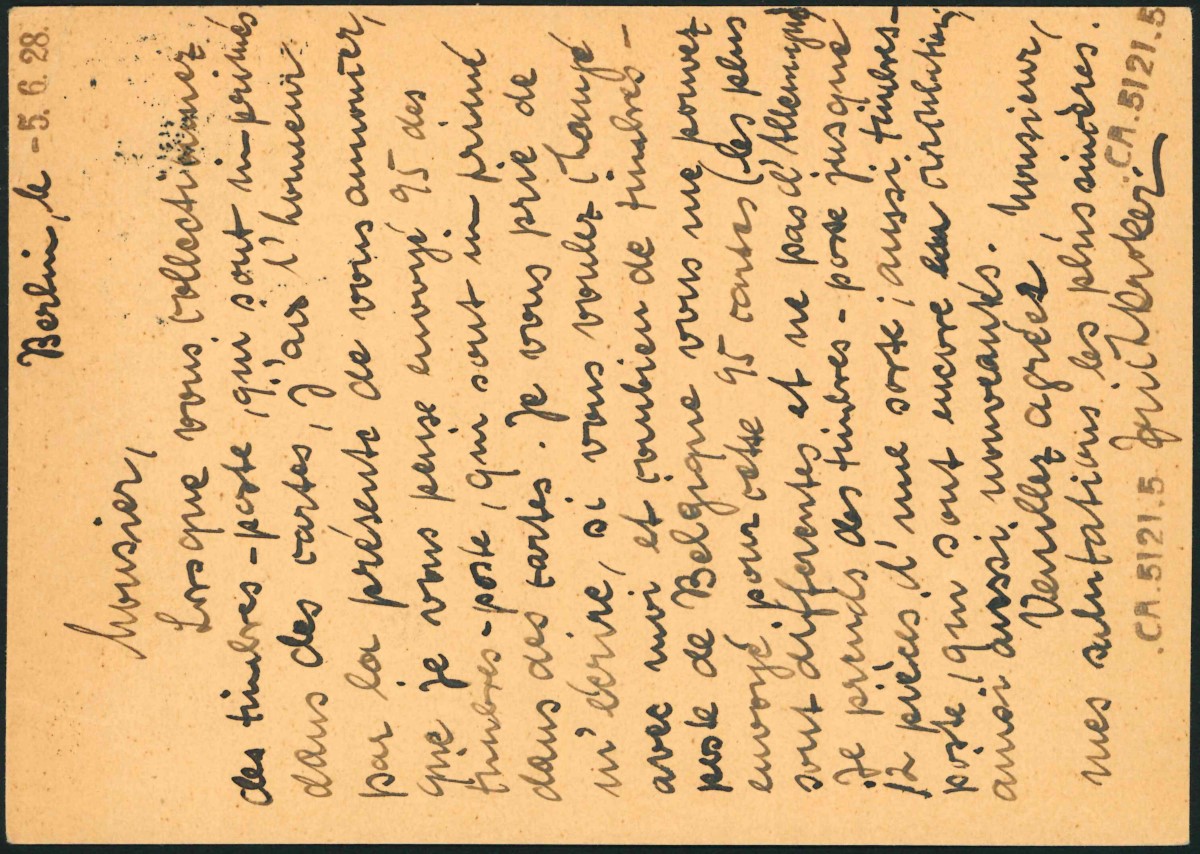 Berlin, le -5. 6. 28.
Monsier,
Lorsque vous collectionnez
des timbres-poste, qui sont im-primés
dans des cartes, j'ais l'honneur
par la présente de vous annoncer,
que je vous pense envoyé 95 des
timbres-poste, qui sont im primé
dans des cartes. Je vous prie de
m'écrire, si vous voulez changé
avec moi et combien de timbres-
poste de Belgique vous me pouvez
envoyé pour cette 95 cartes (les plus
sont differentes et ne pas d'Allemagne
Je prends des timbres-poste jusque
12 pièces d'une sorte, aussi timbres-
poste, qui sont encore en circulation,
ainsi aussi nouveautés.
Veuillez agréez Monsieur,
mes salutations les plus sincères.
.CA.5121.5 .CA.5121.5